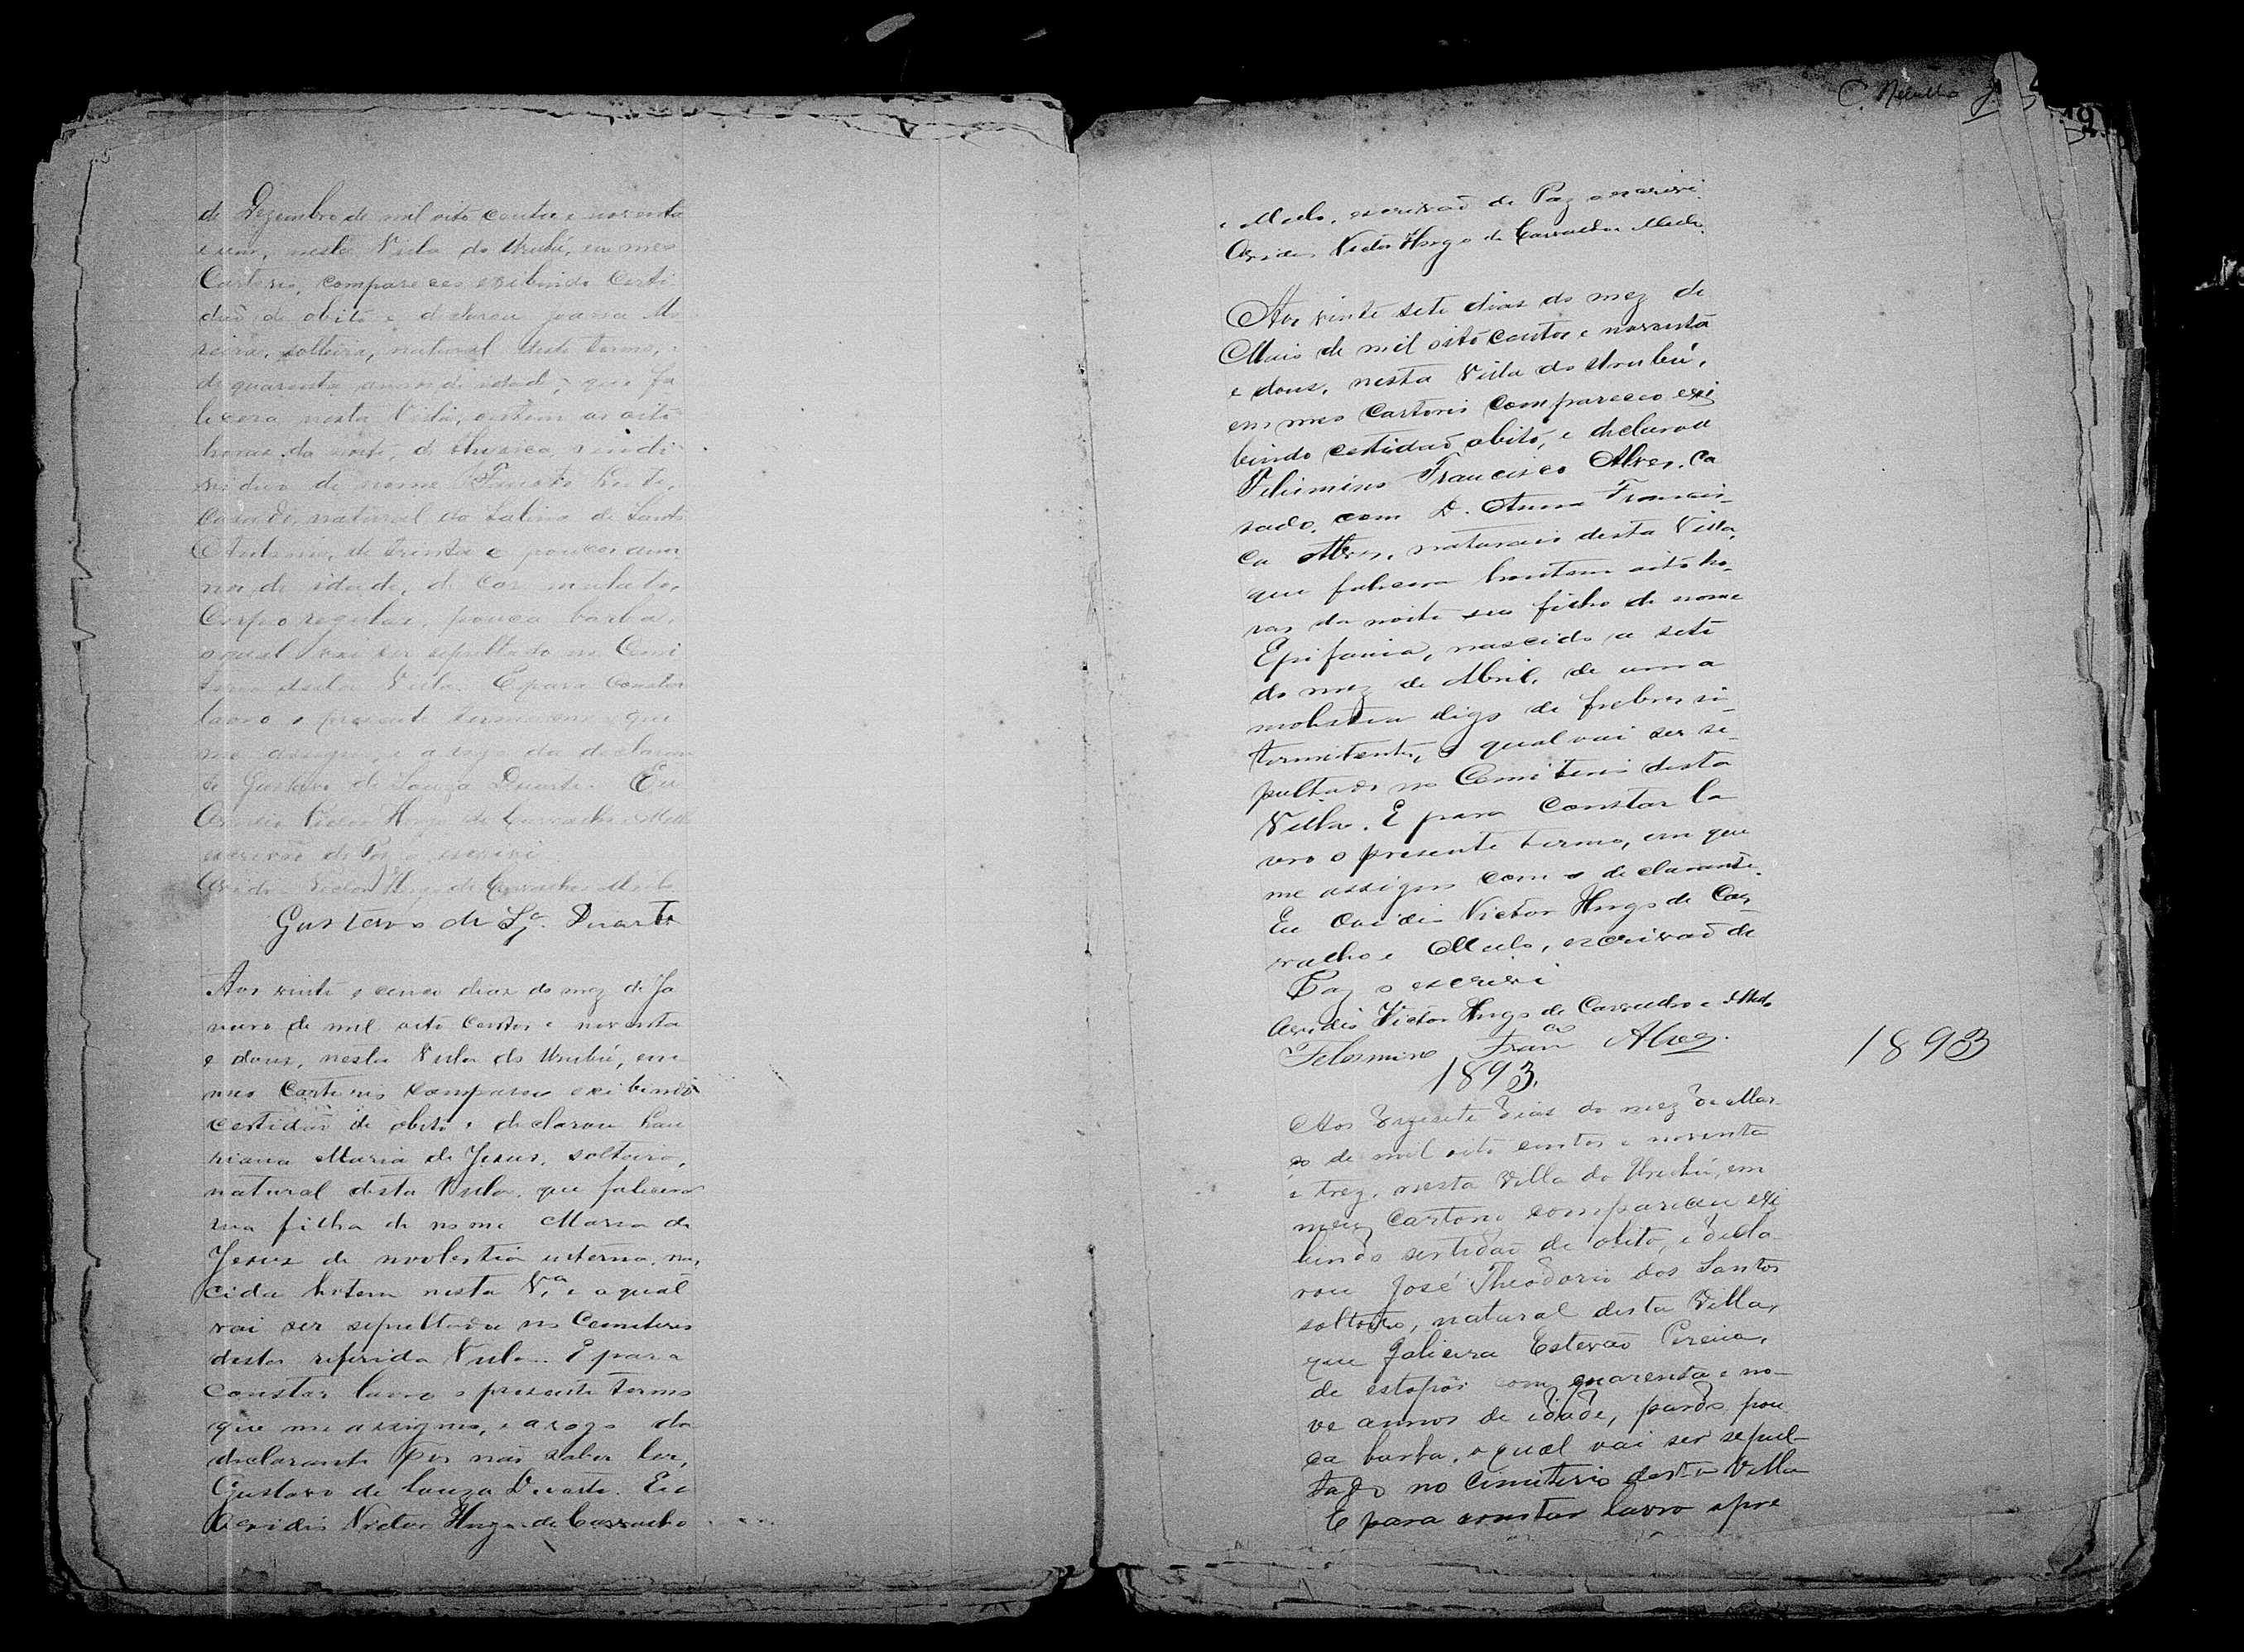 de Dezembro de mil oito centos e noventa
e um, nesta Villa do Urubú, em meo
Cartorio, compareceo exibindo Certi
dão de obito e declarou Joana Mo
reira, solteira, natural deste termo,
de quarenta annos de idade, que fa
lecera nesta Villa, ontem as oito
horas da noite, de thisica, o indi
viduo de nome
Casado, natural do Salino de Santo
Antonio, de trinta e poucos ann
nos de idade, de Cor mulato,
Corpo regular, pouca barba,
o qual vai ser sepultado no Cemi
terio desta Villa. E para Constar
lavro o presente termo em que
me assigno, e a rogo da declaran
te Gustavo de Souza Duarte. Eu
Victor Hugo de Carvalho e Mello
escrivão de Paz o escrevi
Victor Hugo de Carvalho e Mello
Gustavo de Sza. Duarte
Aos vinte e cinco dias do mez de Ja
neiro de mil oito centos e noventa
e dous, nesta Villa do Urubú, em
meo Cartorio compareceo exibindo
certidão de obito e declarou
Maria de Jesus, solteira,
natural desta Villa, que falecera
sua filha de nome Maria de
Jesus de molestia interna, nas
cida hotem nesta Va. e a qual
vai ser sepultada no Cemiterio
desta referida Villa. E para
constar lavro o presente termo
que me assigno, e a rogo da
declarante por não saber ler,
Gustavo de Souza Duarte. Eu
Victor Hugo de Carvalho
e Mello, escrivão de Paz o escrevi
Victor Hugo de Carvalho e Mello.
Aos vinte sete dias do mez de
Maio de mil oito centos e noventa
e dous, nesta Villa do Urubú,
em meo Cartorio compareceo exi
bindo certidão obito, e declarou
Francisco Alves, ca
sado, com D. Anna Francis
ca Alves, naturais desta Villa,
que falecera hontem oito ho
ras da noite seo filho de nome
Epifania, nascido a sete
do mez de Abril, de uma
molestia digo de febres in
termitentes, o qual vai ser se
pultado no Cemiterio desta
Villa. E para Constar la
vro o presente termo, em que
me assigno com o declarante.
Eu Victor Hugo de Car
valho e Mello, escrivão de
Paz o escrevi
Victor Hugo de Carvalho e Mello
Felermino Franco Alves.
1893.
1893
Aos dezesete dias do mez de Mar
ço de mil oito centos e noventa
e trez, nesta Villa do Urubú, em
meu Cartorio compareceu exi
bindo sertidão de obito, e decla
rou José Theodorio dos Santos
solteiro, natural desta Villa,
que falicera Estevão Pereira,
de estopôr com quarenta e no
ve annos de idade, pardo pou
ca barba, o qual vai ser sepul
tado no Cimiterio desta Villa
E para constar lavro o pre